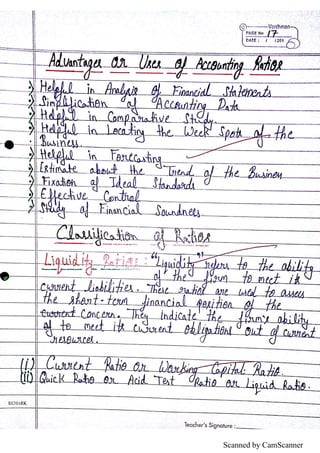 Vardhman
PAGE No. 17
DATE: / /201
Advantages or Uses of Accounting Ratios
Helpful in Analysis of Financial Statements
Simplification of Accounting Data
Helpful in Comparative Study.
Helpful in Locating the Week Spots of the
Business.
Helpful in Forecasting
Estimate about the Trend of the Business
Fixation of Ideal Standards
Effective Control
Study of Financial Soundness.
Classification of Ratios
Liquidity Ratios: "Liquidity" refers to the ability
of the firm to meet its
current liabilities. These ratios are used to assess
the short-term financial position of the
current Concern. They indicate the firm's ability
of to meet its current obligations out of current
resources.
(i) Current Ratio or Working Capital Ratio.
(ii) Quick Ratio or Acid Test Ratio or Liquid Ratio.
Teacher's Signature:
Scanned by CamScanner